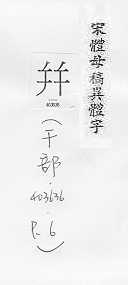 宋體母稿異體字
幷
403636
(干部.
403636
P. 6)